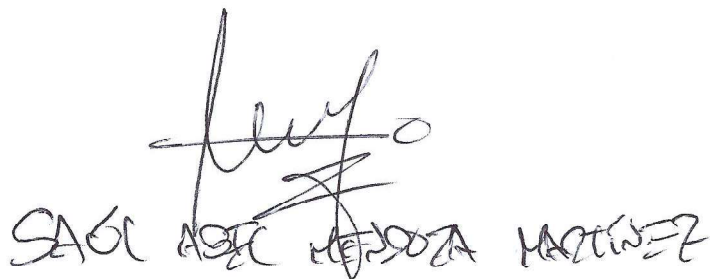 SAÚL ABEL MENDOZA MARTÍNEZ